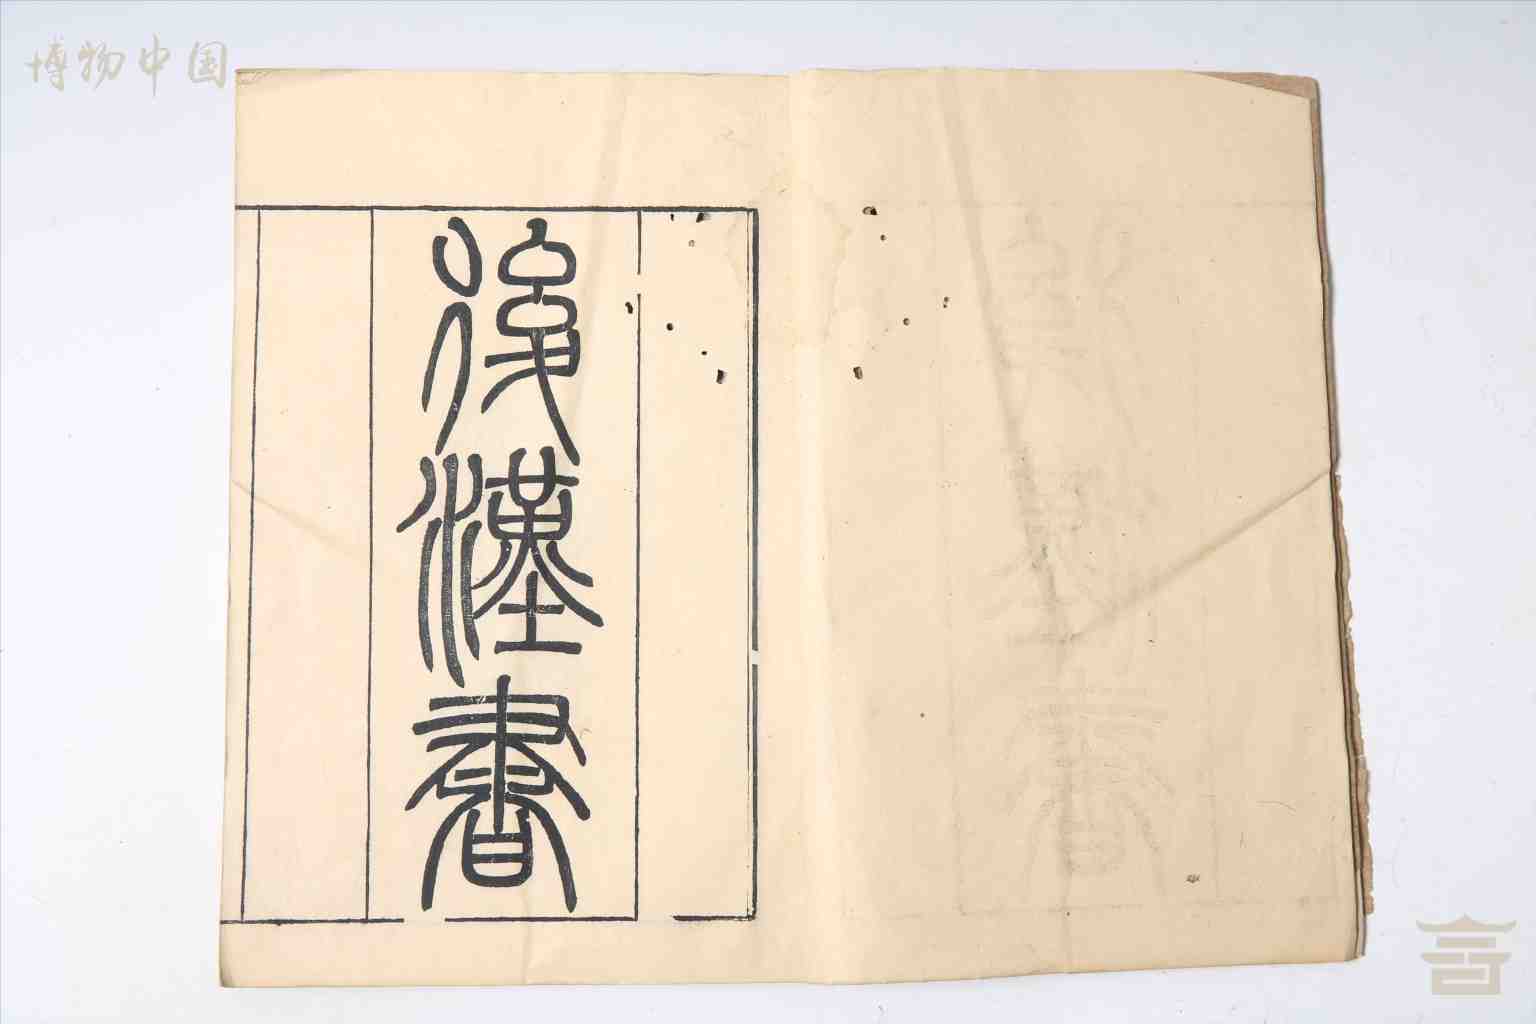 博物中国
後漢書